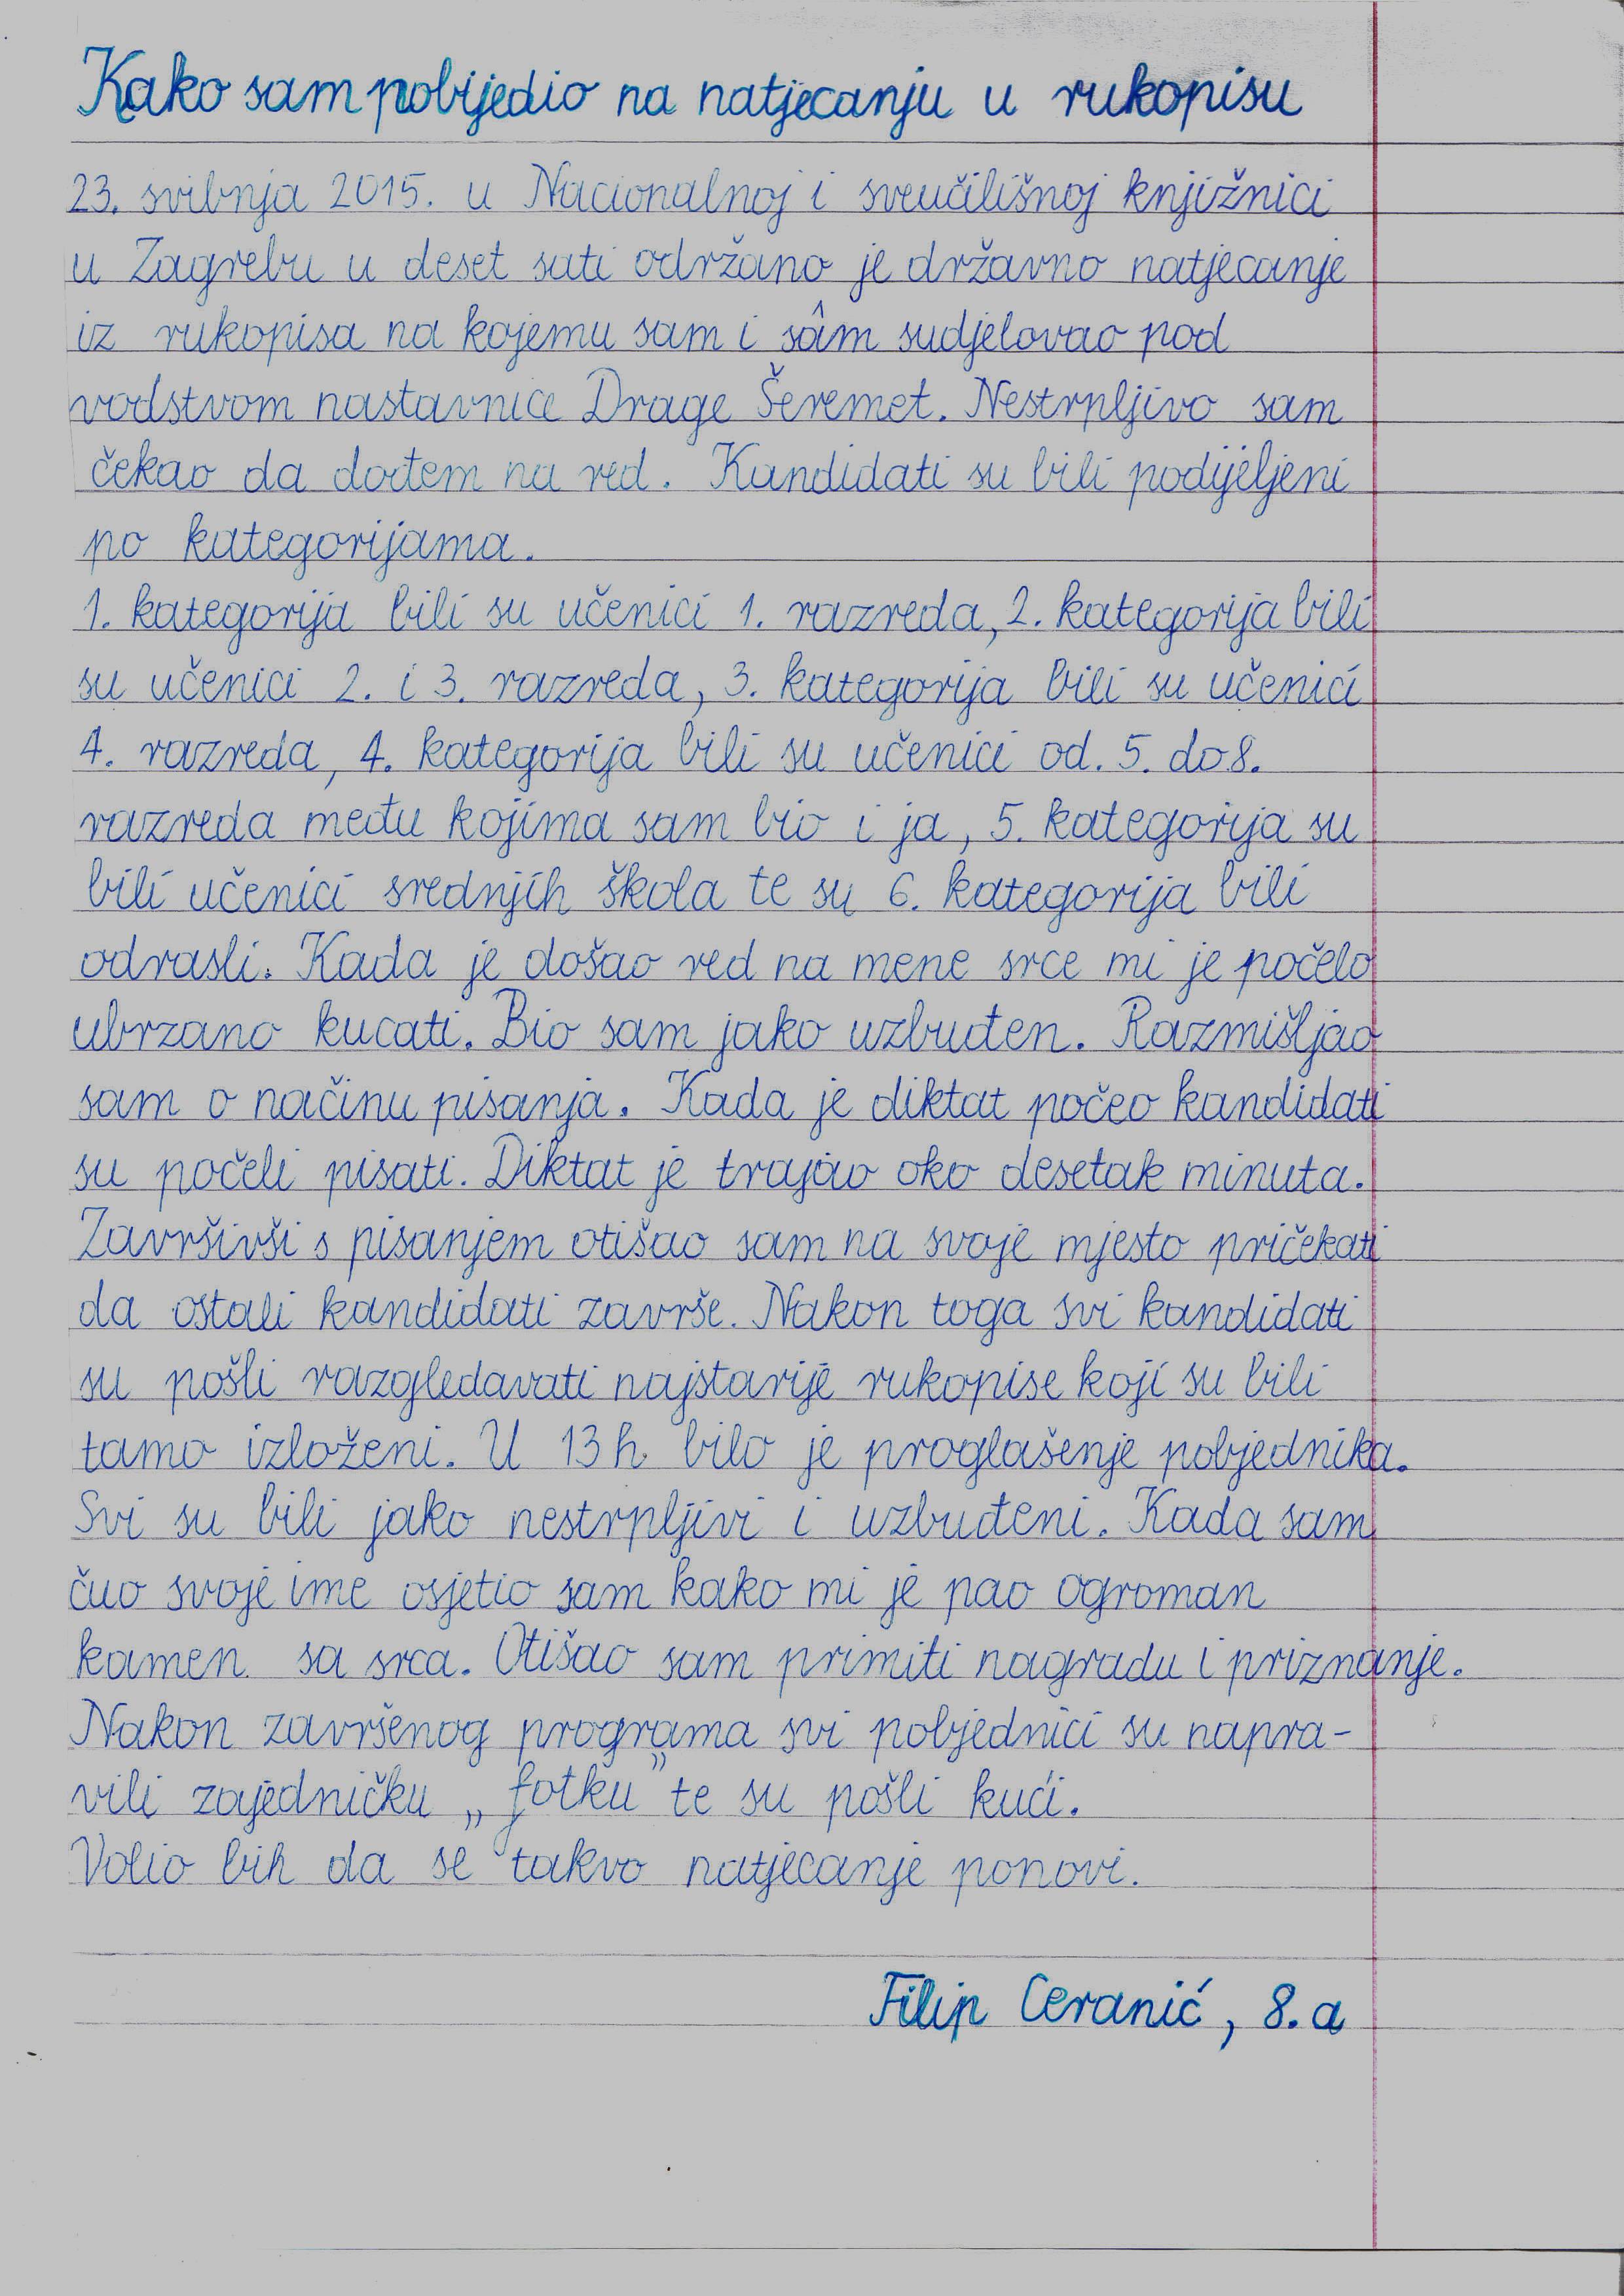 Kako sam pobijedio na natjecanju u rukopisu
23. svibnja 2015. u Nacionalnoj i sveučilišnoj knjižnici
u Zagrebu u deset sati održano je državno natjecanje
iz rukopisa na kojemu sam i sâm sudjelovao pod
vodstvom nastavnice Drage Šeremet. Nestrpljivo sam
čekao da dođem na red. Kandidati su bili podijeljeni
po kategorijama.
1. kategorija bili su učenici 1. razreda, 2. kategorija bili
su učenici 2. i 3. razreda, 3. kategorija bili su učenici
4. razreda, 4. kategorija bili su učenici od. 5. do 8.
razreda među kojima sam bio i ja, 5. kategorija su
bili učenici srednjih škola te su 6. kategorija bili
odrasli. Kada je došao red na mene srce mi je počelo
ubrzano kucati. Bio sam jako uzbuđen. Razmišljao
sam o načinu pisanja. Kada je diktat počeo kandidati
su počeli pisati. Diktat je trajao oko desetak minuta.
Završivši s pisanjem otišao sam na svoje mjesto pričekati
da ostali kandidati završe. Nakon toga svi kandidati
su pošli razgledavati najstarije rukopise koji su bili
tamo izloženi. U 13 h. bilo je proglašenje pobjednika.
Svi su bili jako nestrpljivi i uzbuđeni. Kada sam
čuo svoje ime osjetio sam kako mi je pao ogroman
kamen sa srca. Otišao sam primiti nagradu i priznanje.
Nakon završenog programa svi pobjednici su napra-
vili zajedničku „fotku” te su pošli kući.
Volio bih da se takvo natjecanje ponovi.
Filip Ceranić, 8. a